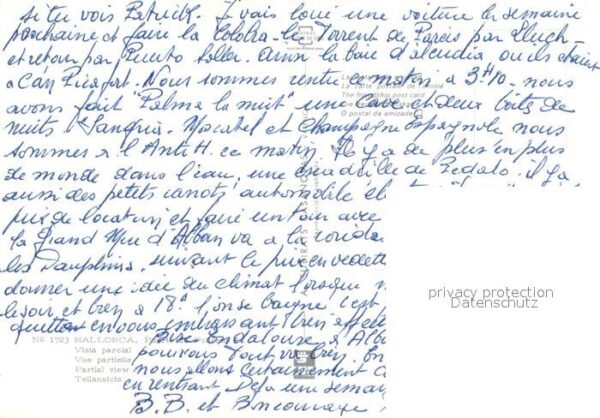 si tu vois Patrick. J vais loué une voiture la semaine
prochaine et faire la Colobra - le Torrent de Pareis par Lluch
et retour par Puerto Soller. Ainsi la baie d'alcudia ou ils étaient
a Can Picafort. Nous sommes rentré ce matin a 3H10 - nous
avons fait "Palma la nuit" une cave et deux boîtes de
nuits Sangria - Moscatel et Champagne espagnole nous
sommes a l'Anti H. ce matin Il y a de plus en plus
de monde dans l'eau, une escadrille de Pedalo. il y a
aussi des petits canots automobile et
prix de location et faire un tour avec
la Grand Mère d'Alban va a la corrida
les Dauphins. suivant le prix en vedette
donner une idée du climat lorsque
le soir et bien a 18° l'on se baigne c'est
quittons en vous embrassant bien
Bise Endalouse a Alb
pourvous tout va bien. En
nous allons certainement
en rentrant Deja une semai
B.B. et
La carte postale de l'amitié
The friendship post card
O postal da amizade
Nº 1723 MALLORCA,
Vista parcial
Vue partielle
Partial view
Teilansicht
privacy protection
Datenschutz